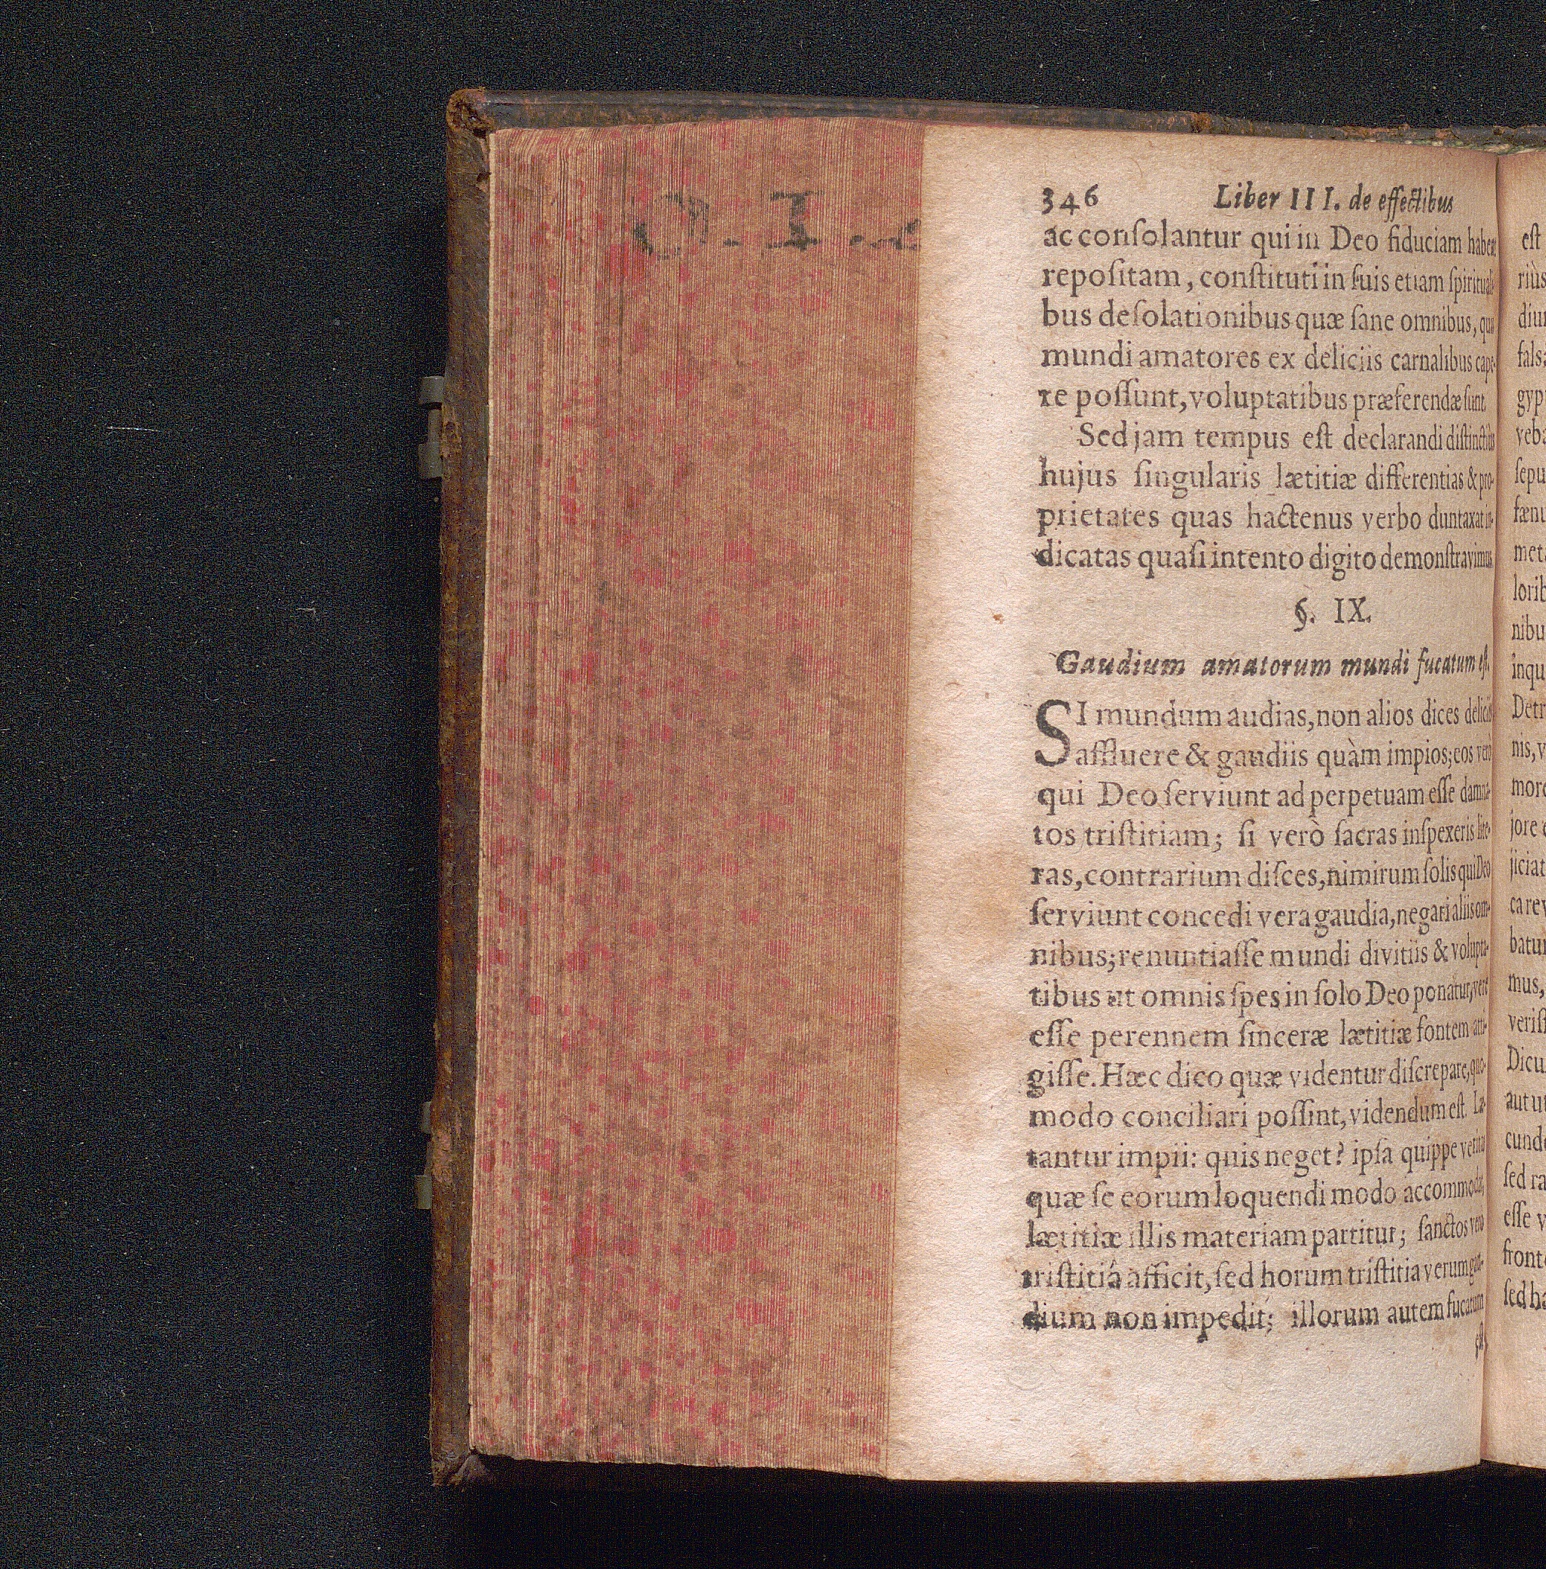 O. I. L
346 Liber III. de effectibus
ac consolantur qui in Deo fiduciam habent
repositam, constituti in suis etiam spirituali-
bus desolationibus quæ sane omnibus, quas
mundi amatores ex deliciis carnalibus cape-
re possunt, voluptatibus præferendæ sunt.
Sed jam tempus est declarandi distinctius
hujus singularis lætitiæ differentias & pro-
prietates quas hactenus verbo duntaxat in-
dicatas quasi intento digito demonstravimus.
§. IX.
Gaudium amatorum mundi fucatum est.
SI mundum audias, non alios dices deliciis
affluere & gaudiis quàm impios; eos verò
qui Deo serviunt ad perpetuam esse damna-
tos tristitiam; si verò sacras inspexeris lite-
ras, contrarium disces, nimirum solis qui Deo
serviunt concedi vera gaudia, negari aliis om-
nibus; renuntiasse mundi divitiis & volupta-
tibus ut omnis spes in solo Deo ponatur, verè
esse perennem sinceræ lætitiæ fontem atti-
gisse. Hæc dico quæ videntur discrepare, quo-
modo conciliari possint, videndum est. Læ-
tantur impii: quis neget? ipsa quippe veritas
quæ se eorum loquendi modo accommodat,
lætitiæ illis materiam partitur; sanctos vero
tristitiâ afficit, sed horum tristitia verum gau-
dium non impedit; illorum autem fucatum
est
riùs
diu
fals
gyp
veb
sepu
fænu
met
lorib
nibu
inqu
Detr
nis, v
more
jore
jiciat
ca rev
batur
mus,
veris
Dicu
aut ut
cund
sed ra
esse v
front
sed ha